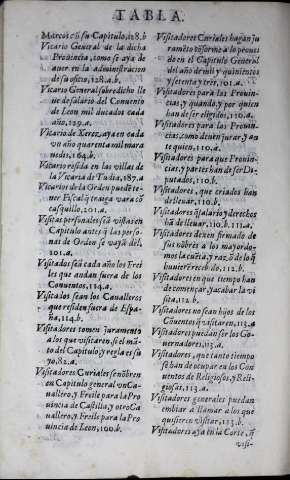 TABLA.
Marcos cō su Capitulo, 128.b
Vicario General de la dicha
Prouincia, como se aya de
auer en la administracion
de su oficio, 128.a.b.
Vicario General sobredicho lle
ue de salario del Conuento
de Leon mil ducados cada
año, 129.a.
Vicario de Xerez, aya en cada
vn año quarenta mil mara
uedis, 164.b.
Vicario resida en las villas de
la Vicaria de Tudia, 187.a
Vicarios de la Orden puedē te-
ner Fiscal q̄ trayga vara cō
casquillo, 201.a.
Visitas personales seā vistas en
Capitulo antes q̄ las perso-
nas de Orden se vayā del,
201.a.
Visitados seā cada año los Frei
les que andan fuera de los
Conuentos, 114.a.
Visitados sean los Caualleros
que residen fuera de Espa-
ña, 114.b.
Visitadores tomen juramento
a los que visitaren, si el ma-
to del Capitulo y regla es su
yo, 82.a.
Visitadores Curiales se nōbren
en Capitulo general vn Ca-
uallero, y Freile para la Pro
uincia de Castilla, y otro Ca
uallero, y Freile para la Pro
uincia de Leon, 100.b.
Visitadores Curiales hagan ju
ramēto cōforme a lo proueì
do en el Capitulo General
del año de mil y quinientos
y setenta y tres, 101.a.
Visitadores para las Prouin-
cias, y quando, y por quien
han de ser elegidos, 110.a.
Visitadores para las Prouin-
cias, como deuen jurar, y an
te quien, 110.a.
Visitadores para que Prouin-
cias, y partes han de ser Di-
putados, 110.b.
Visitadores, que criados han
de lleuar, 110.b.
Visitadores q̄ salario y derechos
hā de lleuar, 110.b. 111.a.
Visitadores dexen firmado de
sus nōbres a los mayordo-
mos la cuēta, y razō de lo q̄
huuierē recebido, 112.b.
Visitadores en que tiempo han
de començar, y acabar la vi
sita, 112.b.
Visitadores no sean hijos de los
Cōuentos q̄ visitaren, 113.a.
Visitadores puedan ser los Go-
uernadores, 113.a.
Visitadores, que tanto tiempo
se han de ocupar en los Con
uentos de Religiosos, y Reli-
giosas, 113.a.
Visitadores generales puedan
embiar a llamar a los que
quisieren visitar, 113.b.
Visitadores aya en la Corte, q̄
visi-